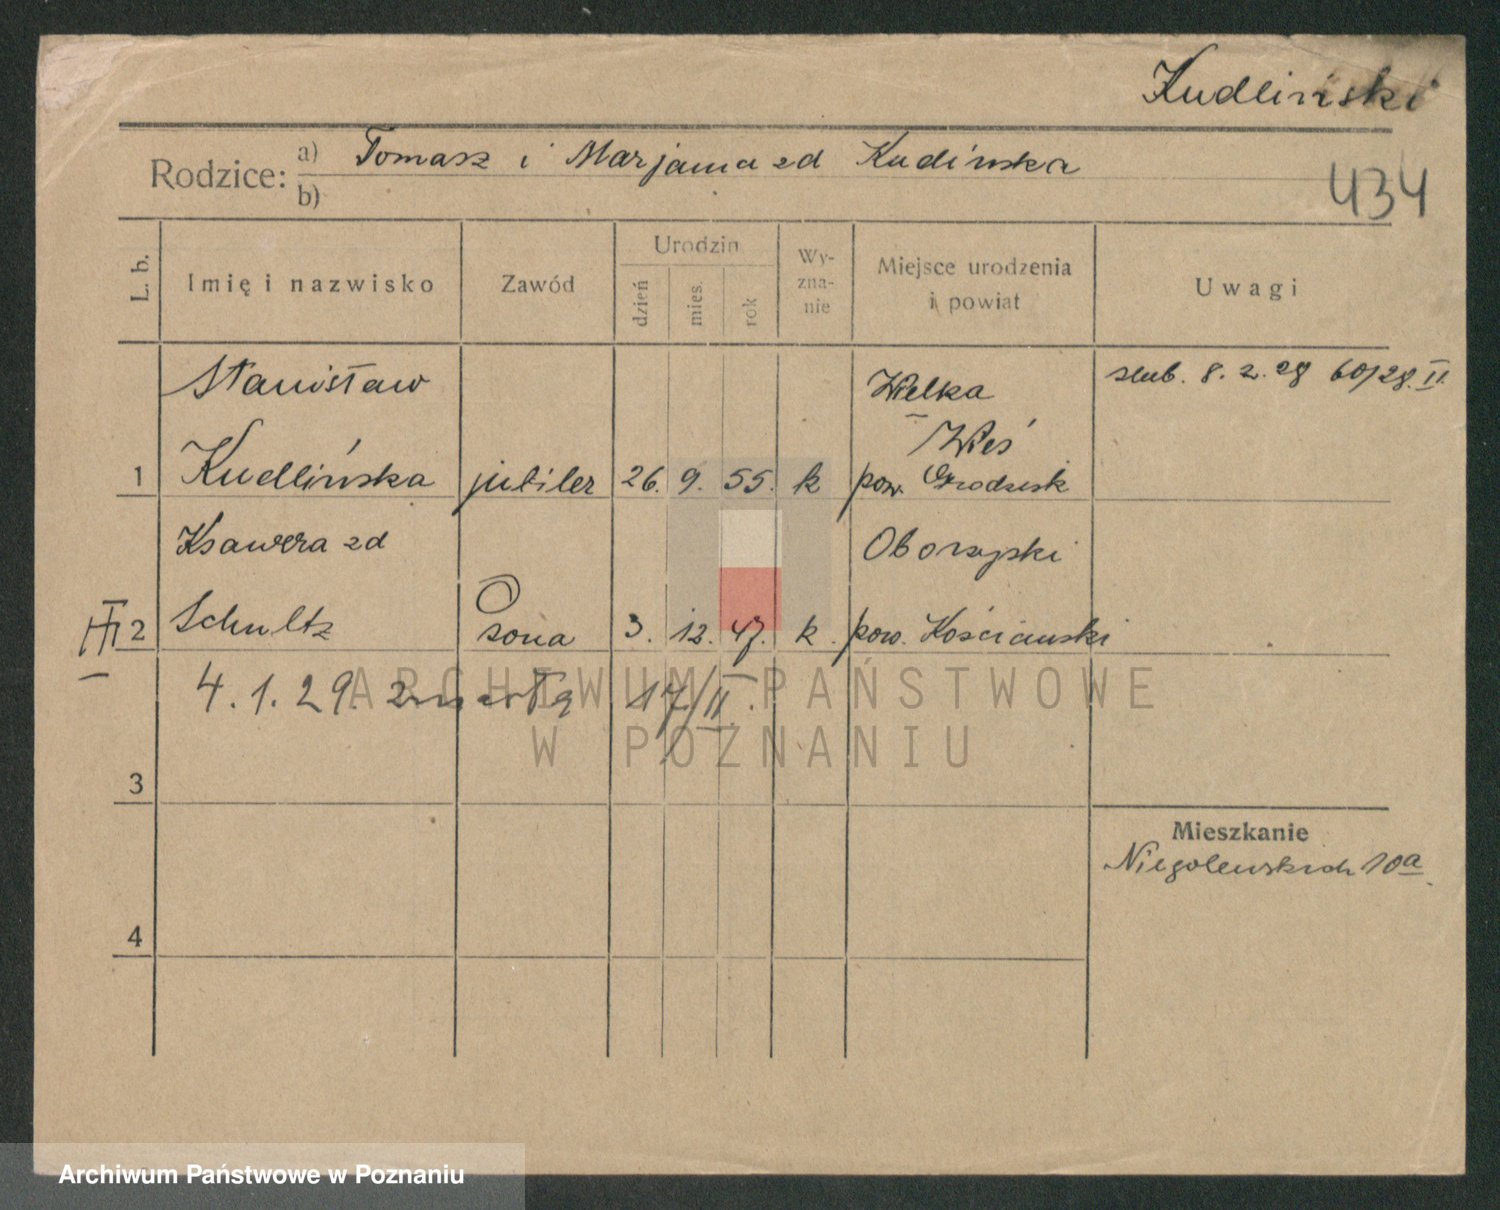 Kudliński
Rodzice: a) Tomasz i Marjanna zd Kudińska
b)
434
L. b.
Imię i nazwisko
Zawód
Urodzin
dzień
mies.
rok
Wy-
zna-
nie
Miejsce urodzenia
i powiat
Uwagi
Stanisław
Wielka
ślub. 8.2.28 60/28.II.
Wieś
1 Kudlińska jubiler 26. 9. 55. k pow. Grodzisk
Ksawera zd
Oborzyski
2 Schultz żona 3. 12. 47. k. pow. Kościański
4.1.29. zmarła 17/II.
ARCHIWUM PAŃSTWOWE
W POZNANIU
3
Mieszkanie
Niegolewskich 10a
4
Archiwum Państwowe w Poznaniu